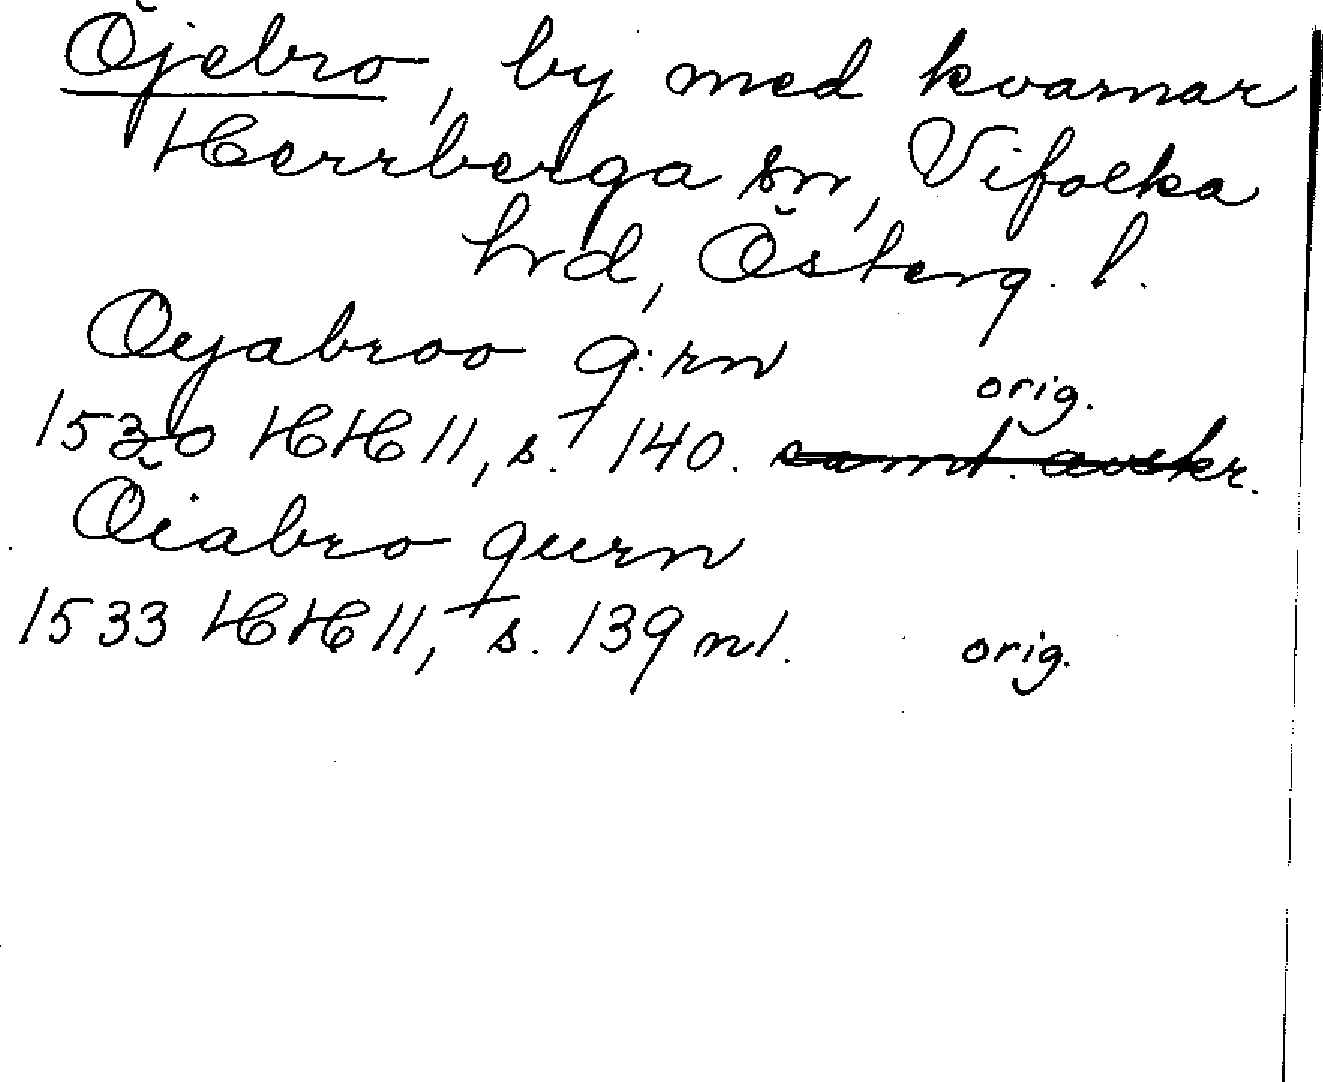 Öjebro, by med kvarnar
Herrberga sn, Vifolka
hrd, Österg. l.
Oyabroo q:rn
orig.
1530 HH 11, s. 140. samt. avskr.
Öiabro quern
1533 HH 11, s. 139 nt. orig.